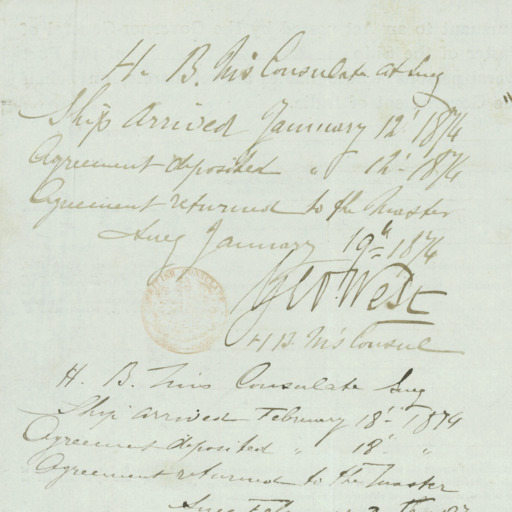 H. B. M's Consulate at Suez
Ship arrived January 12' 1874
Agreement deposited " 12' 1874
Agreement returned to the Master
Suez January 19th 1874
Geo West
H B M's Consul
H. B. M's Consulate Suez
Ship arrived February 18' 1874
Agreement deposited " 18' "
Agreement returned to the Master
Suez